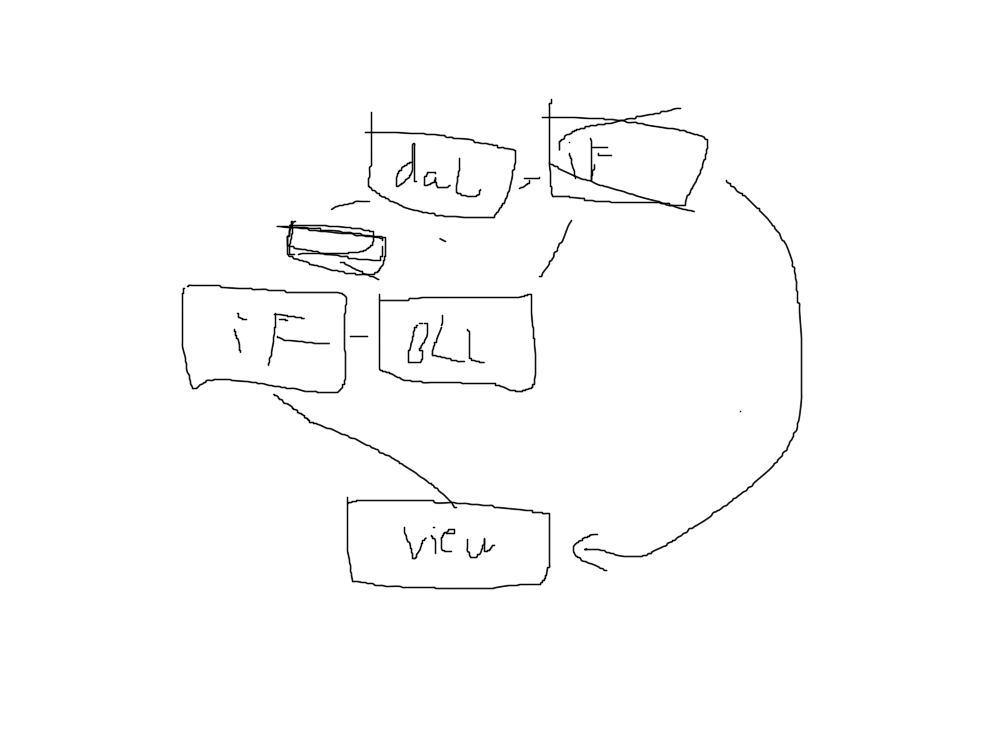 dal
iF
iF
BLL
view